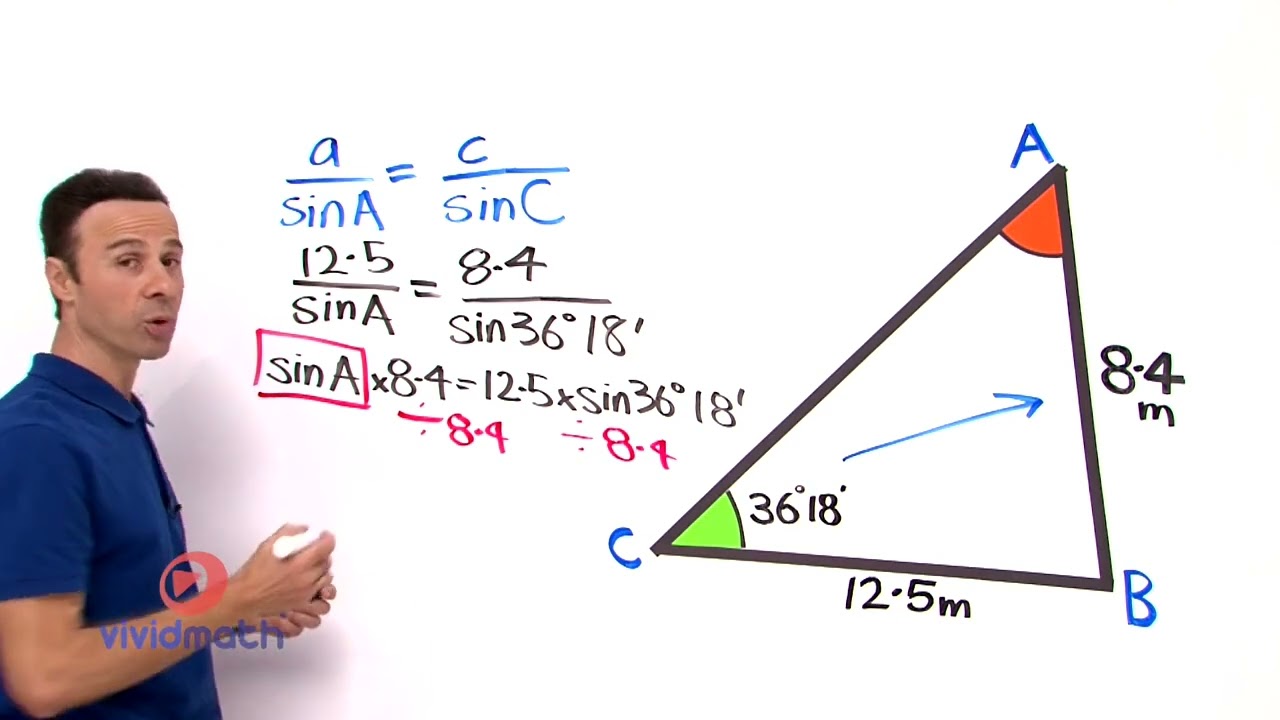 a/sinA = c/sinC
12·5/sinA = 8·4/sin36°18'
sinA × 8·4 = 12·5 × sin36°18'
÷8·4 ÷8·4
A
8·4
m
36°18'
C
12·5m
B
vividmath